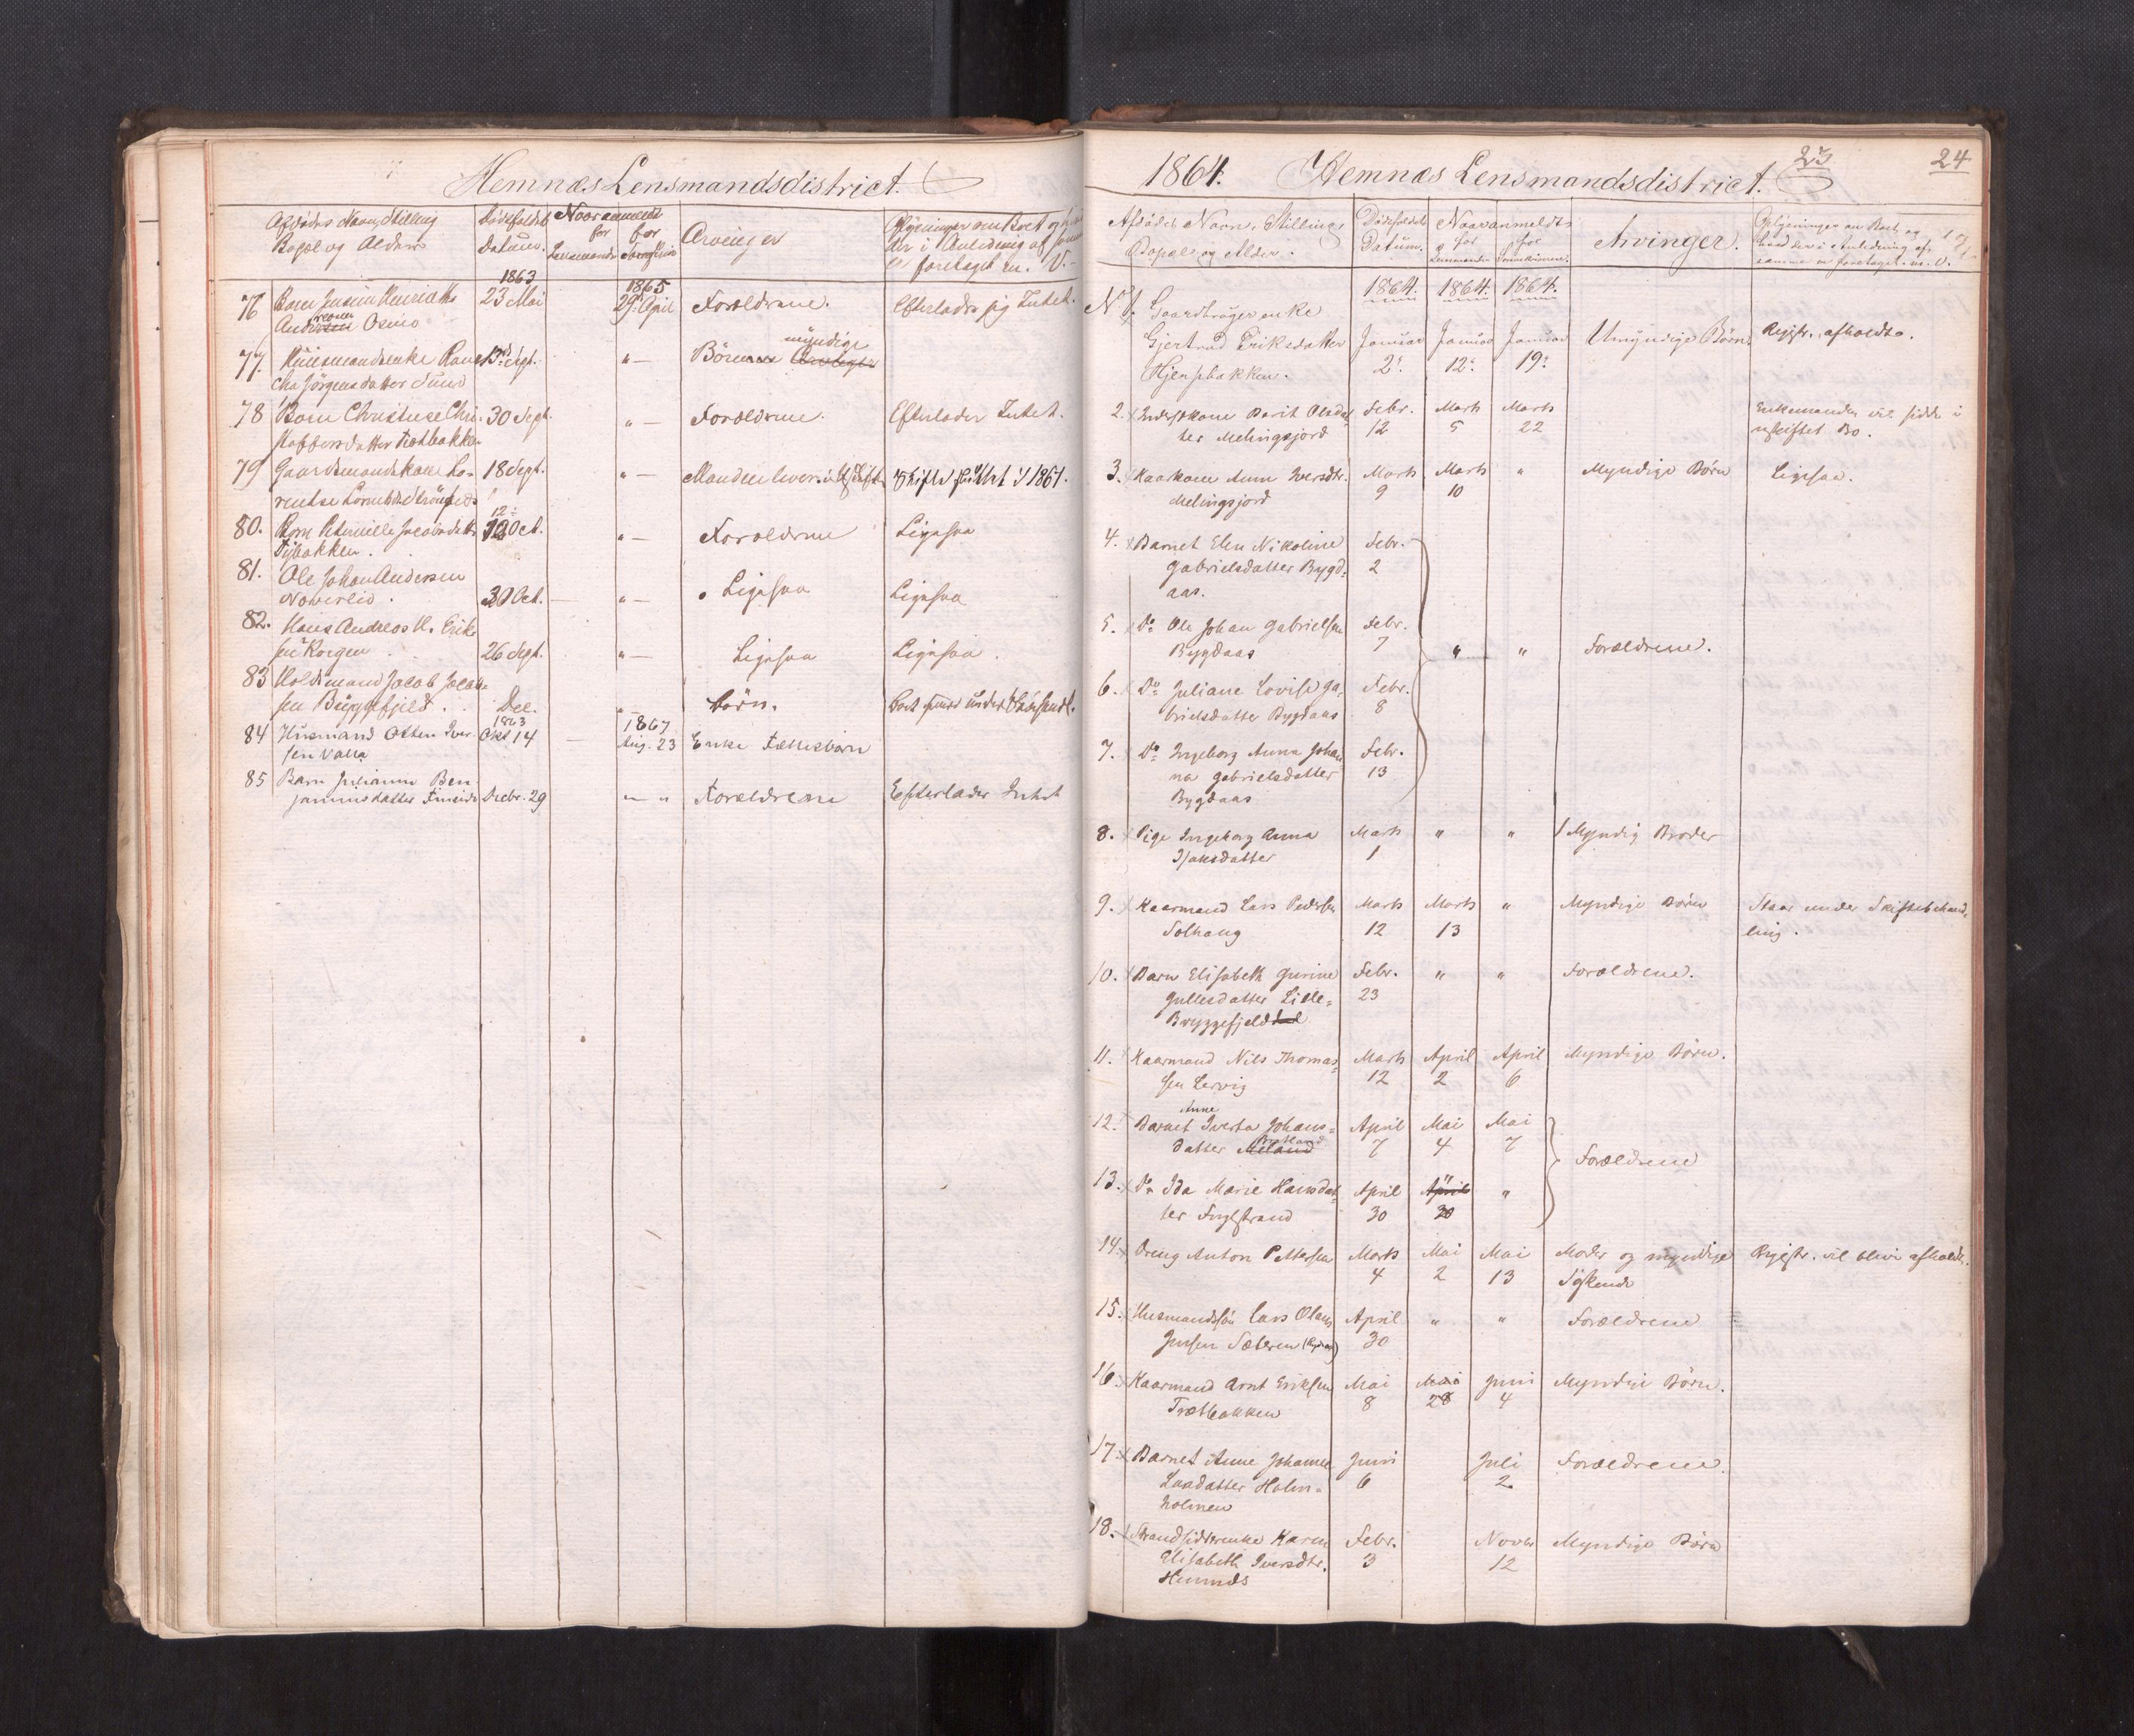 Hemnæs Lensmandsdistrict.
Afdødes Navn, Stilling
Bopæl og Alder
Dödsfaldets
Datum.
Naar anmeldt
for
Lensmanden
for
Arvinger
Oplysninger om Boet og
der i Anledning af
er foretaget m. V.
1863
1865
76
23 Mai
29 April
Forældrene.
Efterlader sig Intet.
Osmo
77.
Huusmandsenke
13 Sept.
" —
Börn
myndige
Jörgensdatter
78
Barn Christine Chri-
30 Sept
" —
Forældrene.
Efterlader Intet.
stoffersdatter Træthakken
79
Gaardmandskone Lo-
18 Sept.
" —
Manden
1861.
rentse
80.
Barn Peternille Jacobsdatt
12
Oct.
" —
Forældrene
Ligesaa
81.
Ole Johan Andersen
30 Oct.
" —
Ligesaa
Ligesaa
82.
Hans Andreas H. Erik-
sen Korgen
26 Sept.
" —
Ligesaa
Ligesaa.
83
Holdsmand Jacob Jacob-
sen Bryggfjeld.
Dec.
" —
börn.
84
Husmand Otten Iver-
sen Valla
1863
Okt 14
1867
Aug. 23
Enke Fællesbørn
85
Barn Julianne Ben-
jaminsdatter
Decbr. 29
" "
Forældrene
Efterlader Intet
1864. Hemnæs Lensmandsdistrict.
23
24
Afdødes Navn, Stilling
Bopæl og Alder.
Dödsfaldets
Datum.
Naar anmeldt
for
Lensmanden
for
Skifteretten.
Arvinger.
Oplysninger om Boet, og
hvad der i Anledning af
samme er foretaget m. V.
1864.
1864.
1864.
No 1.
Gaardbrugerenke
Gjertrud Eriksdatter
Hjensbakken.
Januar
2.
Januar
12.
Januar
19.
Umyndige Børn
Registr. afholdt.
2.
Inderstkone Berit Olsdat-
ter Melingsjord
Febr.
12
Marts
5
Marts
22
Enkemanden vil sidde i
uskiftet Bo.
3.
Kaarkone Anne Iversdtr.
Melingsjord
Marts
9
Marts
10
"
Myndige Børn
Ligesaa.
4.
Barnet Elen Nikoline
Gabrielsdatter Bygd-
aas.
Febr.
2
5.
Do Ole Johan Gabrielsen
Bygdaas
Febr.
7
"
"
Forældrene.
6.
Do Juliane Lovise Ga-
brielsdatter Bygdaas
Febr.
8
7.
Do Ingeborg Anna Johan
na Gabrielsdatter
Bygdaas
Febr.
13
8.
Pige Ingeborg Anna
Isaksdatter
Marts
1
"
"
1 Myndig Broder
9.
Kaarmand Lars Pedersen
Solhaug
Marts
12
Marts
13
"
Myndige Børn
Staar under Skiftebehand-
ling.
10.
Barn Elisabeth Gurine
Gullesdatter Lille-
Bryggefjeld
Febr.
23
"
"
Forældrene.
11.
Kaarmand Nils Thomas-
sen Lervig
Marts
12
April
2
April
6
Myndige Børn.
12.
Anne
Barnet Iverta Johans-
datter Meland
April
7
Mai
4
Mai
7
Forældrene
13.
Do Ida Marie Hansdat-
ter Fuglstrand
April
30
April
30
"
14.
Dreng Anton Pettersen
Marts
4
Mai
2
Mai
13
Moder og myndige
Søskende
Registr. vil blive afholdt.
15.
Husmandssøn Lars Olaus
Jensen Sæteren
April
30
"
"
Forældrene
16.
Kaarmand Arnt Eriksen
Træthakken
Mai
8
Mai
28
Juni
4
Myndige Børn.
17.
Barnet Anne Johanna
Larsdatter Holm-
holmen
Juni
6
Juli
2
Forældrene.
18.
Strandsidderenke Karen
Elisabeth Iversdtr.
Hemnæs
Febr.
3
Novbr
12
Myndige Børn